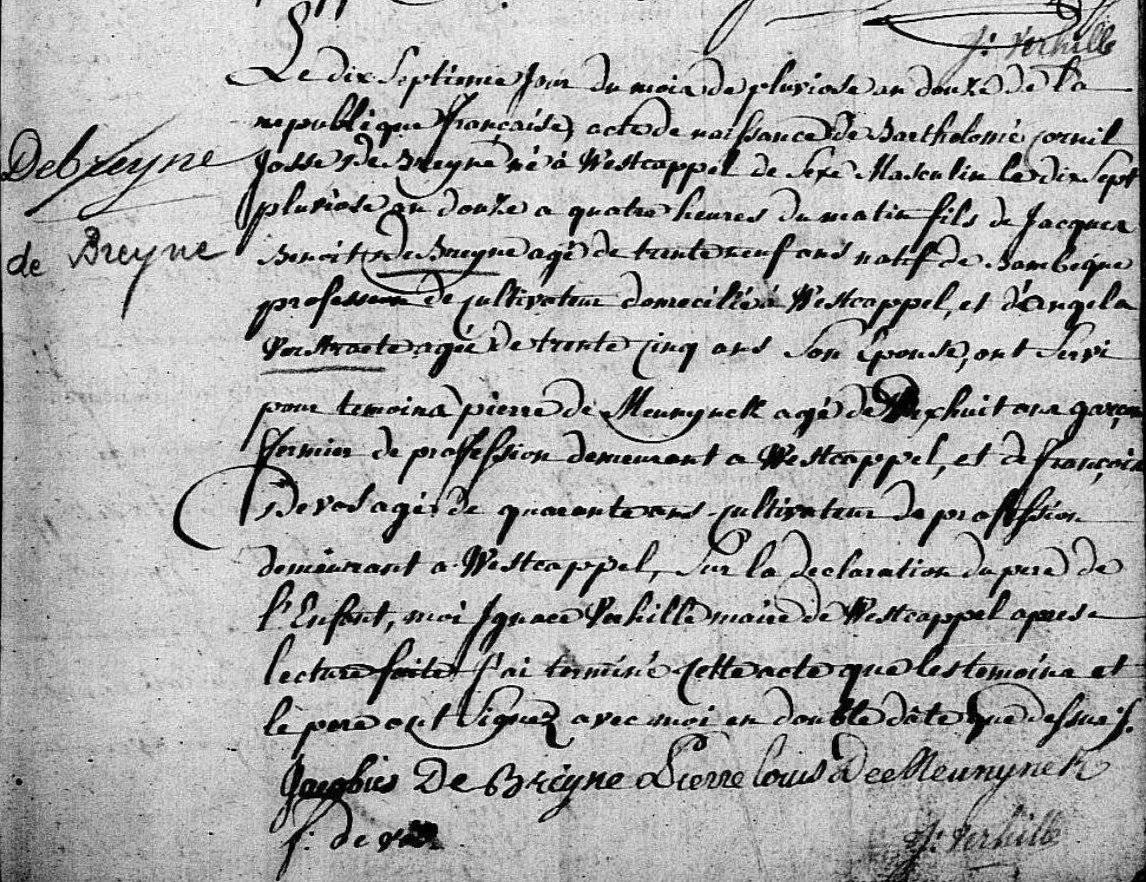 J: Verhille
Le dix Septieme Jour du mois de pluviose an douze de la
republique française, acte de naissance de Bartholomé Cornil
Josse de Breyne né à Westcappel de sexe Masculin le dix Sept
pluviose an douze a quatre heures du matin fils de Jacques
Debreyne
Benoit de Breyne agé de trente neuf ans natif de Bambeque
de Breyne
profession de cultivateur domecilié à Westcappel, et d'Angela
Verstraete agée de trente cinq ans son Epouse, ont servi
pour temoins pierre de Meunynck agé de Dixhuit ans garçon
fermier de profession demeurant a Westcappel, et de françois
Devos agé de quarante ans cultivateur de profession
demeurant a Westcappel, Sur la declaration du pere de
l'Enfant, moi Ignace Verhille maire de Westcappel apres
lecture faite j'ai terminé cette acte que les temoins et
le pere ont Signez avec moi en double date que dessus.
Jacobus De Breyne Pierre louis De Meunynck
f: de vos
J: Verhille